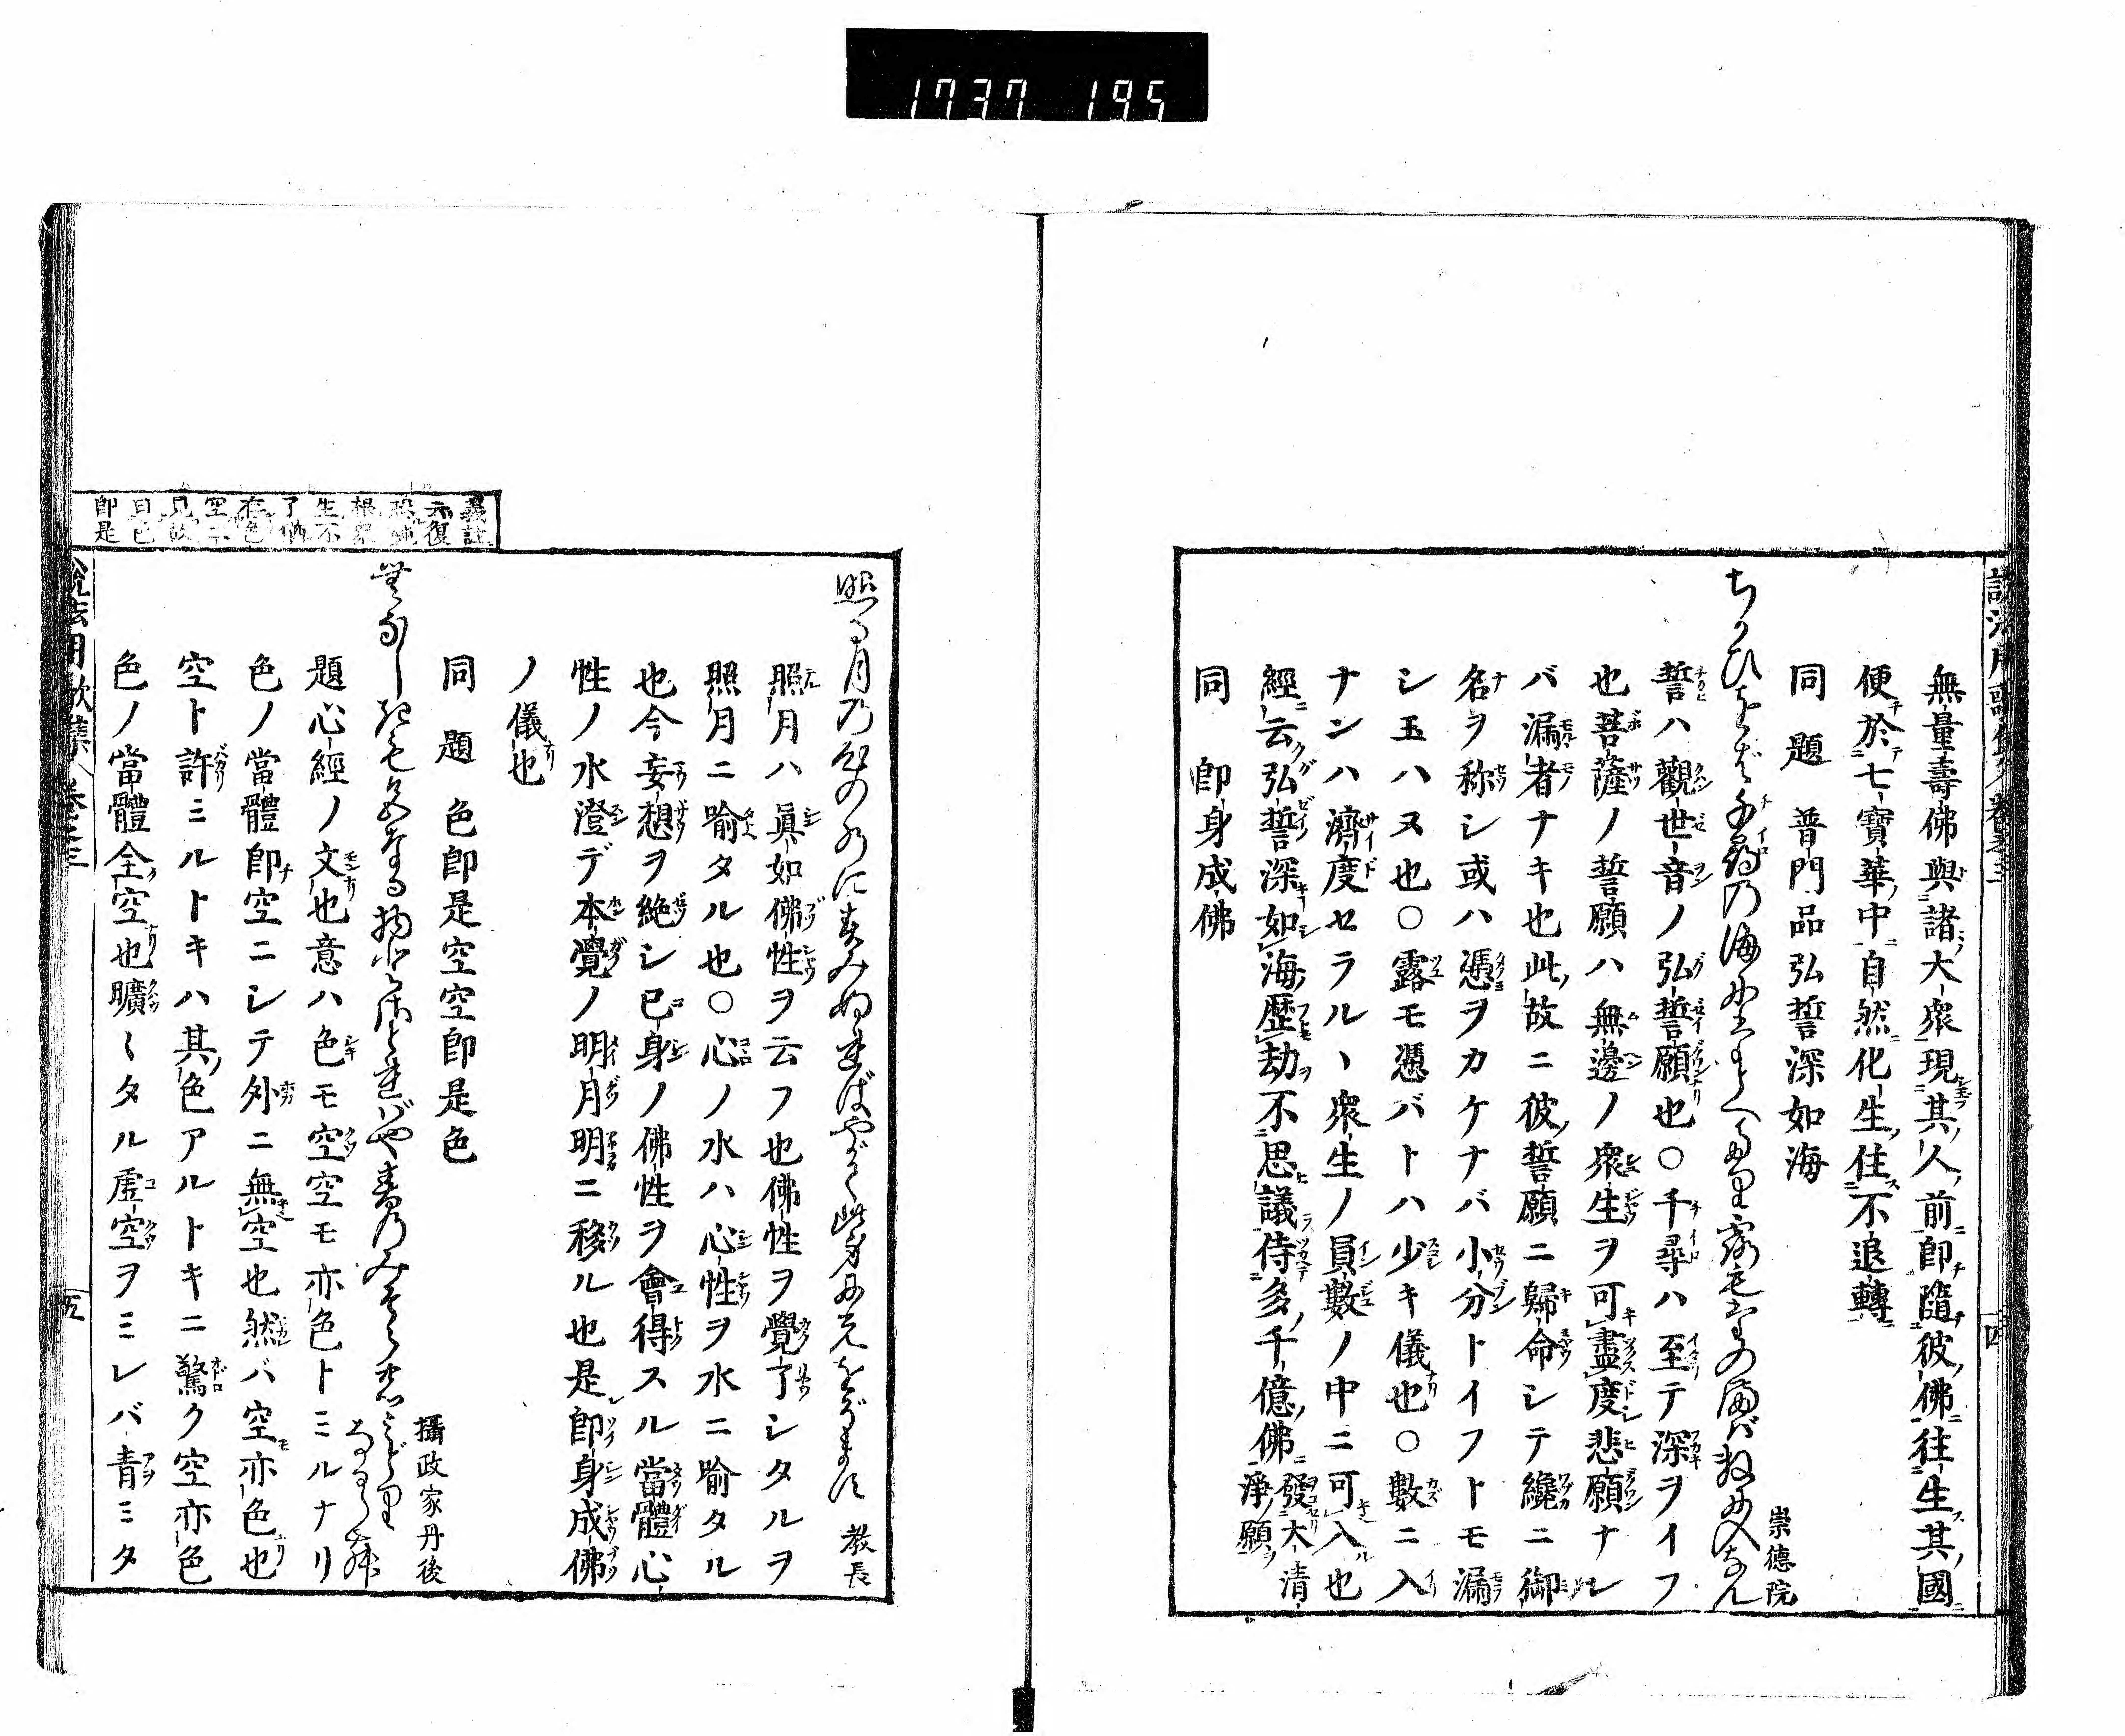 1737 195
無量壽佛與諸大衆現其人前即隨彼佛往生其國
便於七寶華中自然化生住不退轉
同題 普門品弘誓深如海
崇德院
ちかひをば千尋の海にたとふなり露もたのまば數に入なん
誓ハ觀世音ノ弘誓願也〇千尋ハ至テ深ヲイフ
也菩薩ノ誓願ハ無邊ノ衆生ヲ可盡度悲願ナレ
バ漏者ナキ也此故ニ彼誓願ニ歸命シテ纔ニ御
名ヲ称シ或ハ憑ヲカケナバ小分トイフトモ漏
シ玉ハヌ也〇露モ憑バトハ少キ儀也〇數ニ入
ナンハ濟度セラルヽ衆生ノ員數ノ中ニ可入也
經云弘誓深如海歷劫不思議侍多千億佛發大清淨願
同 即身成佛
說法用歌集 卷之三 四
義註
示復
恐鈍
根衆
生不
了猶
在色
空二
見故
即是
照る月の心の水にすみぬればやがて此身に光をぞます 教長
照月ハ眞如佛性ヲ云フ也佛性ヲ覺了シタルヲ
照月ニ喻タル也〇心ノ水ハ心性ヲ水ニ喻タル
也今妄想ヲ絶シ已身ノ佛性ヲ會得スル當體心
性ノ水澄デ本覺ノ明月明ニ移ル也是即身成佛
ノ儀也
同題 色即是空空即是色
攝政家丹後
むなしきも色なる物とさとれとや春のみそらのみどりなるらん
題心經ノ文也意ハ色モ空空モ亦色トミルナリ
色ノ當體即空ニシテ外ニ無空也然バ空亦色也
空ト許ミルトキハ其色アルトキニ驚ク空亦色
色ノ當體全空也曠〻タル虛空ヲミレバ青ミタ
說法用歌集 卷之三 五